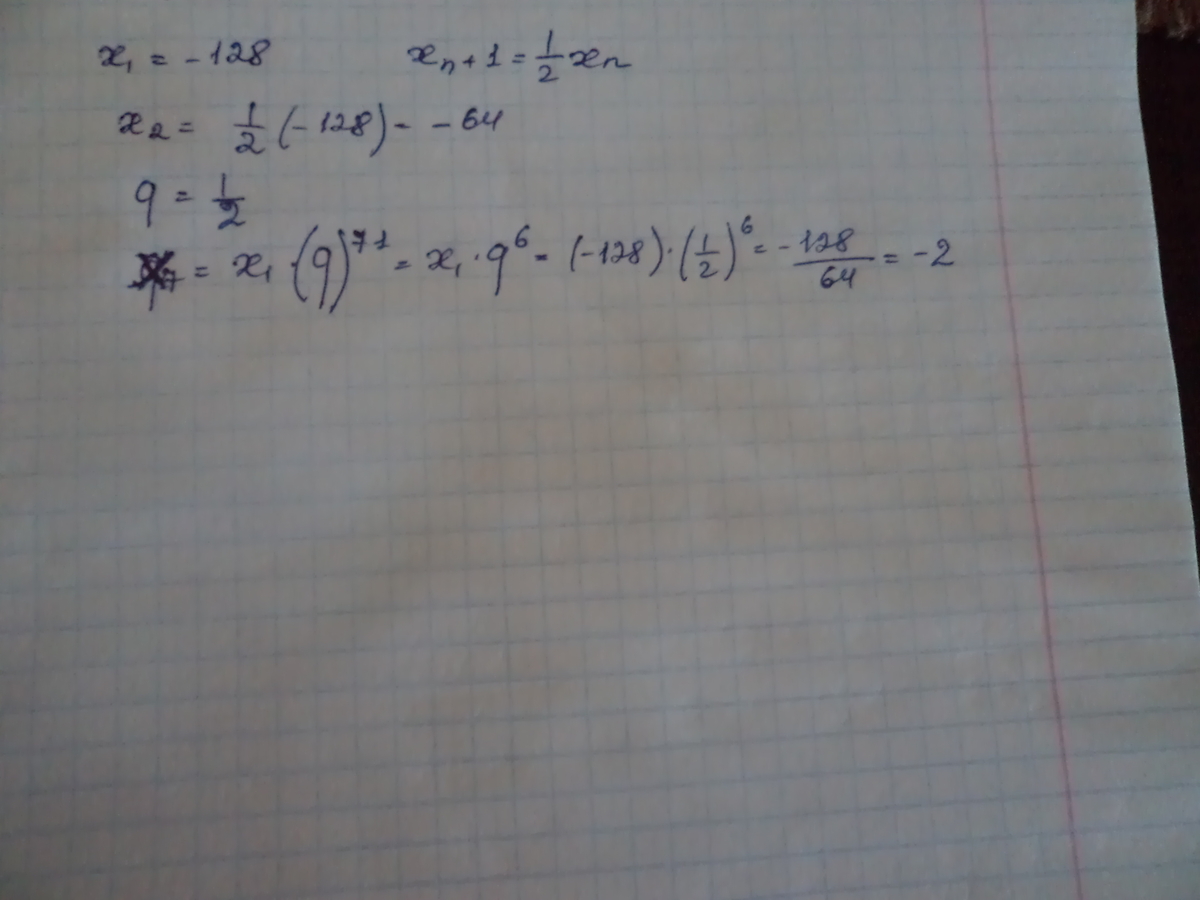 x₁ = -128 xₙ + 1 = 1/2 xₙ
x₂ = 1/2 (-128) - - 64
q = 1/2
₇ = x₁ · (q)⁷ ¹ = x₁ · q⁶ = (-128) · (1/2)⁶ = - 128/64 = -2